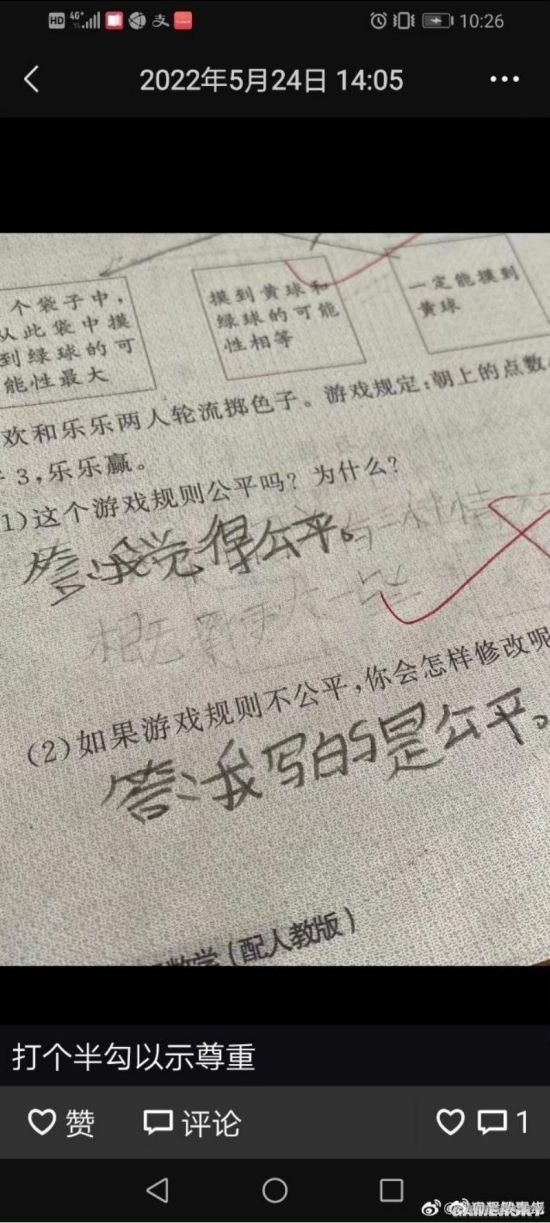 HD 4G 10:26
2022年5月24日 14:05
个袋子中，
从此袋中摸
到绿球的可
能性最大
摸到黄球和
绿球的可能
性相等
一定能摸到
黄球
欢和乐乐两人轮流掷色子。游戏规定：朝上的点数
3，乐乐赢。
1)这个游戏规则公平吗？为什么？
答：我觉得公平。
(2)如果游戏规则不公平，你会怎样修改呢
答：我写的是公平。
数学（配人教版）
打个半勾以示尊重
赞 评论 1
GAMERSKY